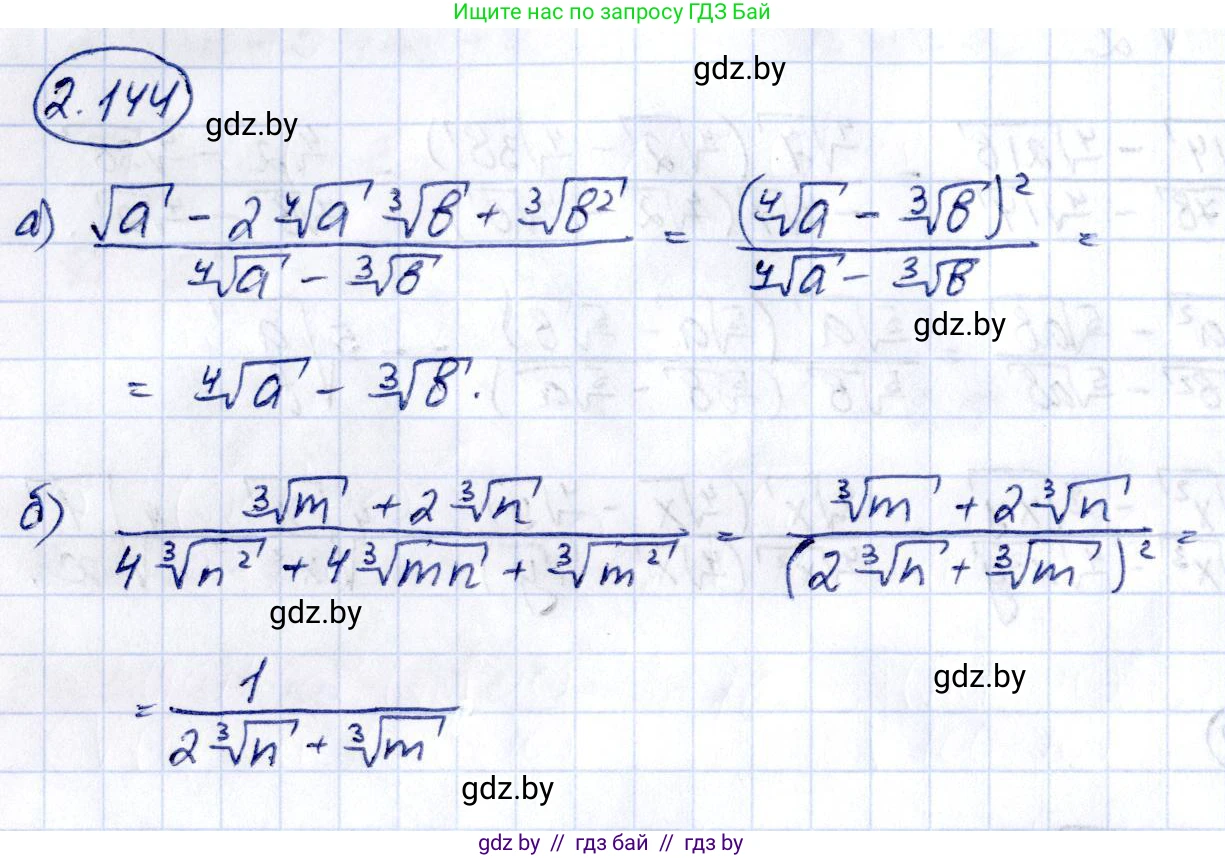 Ищите нас по запросу ГДЗ Бай
gdz.by
2.144
gdz.by
а) (√a - 2 ⁴√a ³√b + ³√b²) / (⁴√a - ³√b) = (⁴√a - ³√b)² / (⁴√a - ³√b) =
gdz.by
= ⁴√a - ³√b.
б) (³√m + 2 ³√n) / (4 ³√n² + 4 ³√mn + ³√m²) = (³√m + 2 ³√n) / (2 ³√n + ³√m)² =
gdz.by
gdz.by
= 1 / (2 ³√n + ³√m)
gdz.by
gdz.by // гдз бай // гдз by